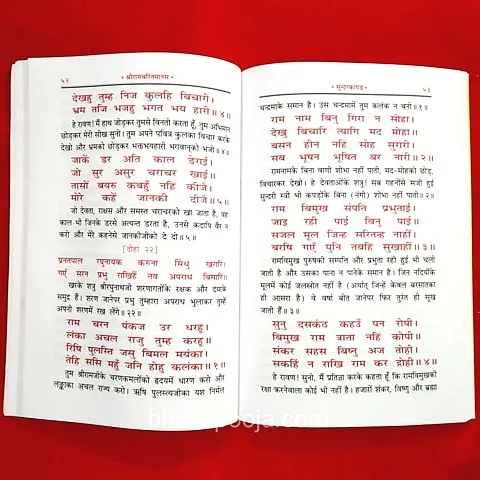 ५२
* श्रीरामचरितमानस *
देखहु तुम्ह निज कुलहि बिचारी।
भ्रम तजि भजहु भगत भय हारी॥४॥
हे रावण! मैं हाथ जोड़कर तुमसे विनती करता हूँ, तुम अभिमान
छोड़कर मेरी सीख सुनो। तुम अपने पवित्र कुलका विचार करके
देखो और भ्रमको छोड़कर भक्तभयहारी भगवान्‌को भजो॥४॥
जाकें डर अति काल डेराई।
जो सुर असुर चराचर खाई॥
तासों बयरु कबहुँ नहिं कीजै।
मोरे कहें जानकी दीजै॥५॥
जो देवता, राक्षस और समस्त चराचरको खा जाता है, वह
काल भी जिनके डरसे अत्यन्त डरता है, उनसे कदापि वैर न
करो और मेरे कहनेसे जानकीजीको दे दो॥५॥
[दोहा २२]
प्रनतपाल रघुनायक करुना सिंधु खरारि।
गएँ सरन प्रभु राखिहैं तव अपराध बिसारि॥
खरके शत्रु श्रीरघुनाथजी शरणागतोंके रक्षक और दयाके
समुद्र हैं। शरण जानेपर प्रभु तुम्हारा अपराध भुलाकर तुम्हें
अपनी शरणमें रख लेंगे॥२२॥
राम चरन पंकज उर धरहू।
लंका अचल राजु तुम्ह करहू॥
रिषि पुलस्ति जसु बिमल मयंका।
तेहि ससि महुँ जनि होहु कलंका॥१॥
तुम श्रीरामजीके चरणकमलोंको हृदयमें धारण करो और
लङ्काका अचल राज्य करो। ऋषि पुलस्त्यजीका यश निर्मल
* सुन्दरकाण्ड *
५३
चन्द्रमाके समान है। उस चन्द्रमामें तुम कलंक न बनो॥१॥
राम नाम बिनु गिरा न सोहा।
देखु बिचारि त्यागि मद मोहा॥
बसन हीन नहिं सोह सुरारी।
सब भूषन भूषित बर नारी॥२॥
रामनामके बिना वाणी शोभा नहीं पाती, मद-मोहको छोड़,
विचारकर देखो। हे देवताओंके शत्रु! सब गहनोंसे सजी हुई
सुन्दरी स्त्री भी कपड़ोंके बिना (नंगी) शोभा नहीं पाती॥२॥
राम बिमुख संपति प्रभुताई।
जाइ रही पाई बिनु पाई॥
सजल मूल जिन्ह सरितन्ह नाहीं।
बरषि गएँ पुनि तबहिं सुखाहीं॥३॥
रामविमुख पुरुषकी सम्पत्ति और प्रभुता रही हुई भी चली
जाती है और उसका पाना न पानेके समान है। जिन नदियोंके
मूलमें कोई जलस्रोत नहीं है (अर्थात् जिन्हें केवल बरसातका
ही आसरा है) वे वर्षा बीत जानेपर फिर तुरंत ही सूख
जाती हैं॥३॥
सुनु दसकंठ कहउँ पन रोपी।
बिमुख राम त्राता नहिं कोपी॥
संकर सहस बिष्नु अज तोही।
सकहिं न राखि राम कर द्रोही॥४॥
हे रावण! सुनो, मैं प्रतिज्ञा करके कहता हूँ कि रामविमुखकी
रक्षा करनेवाला कोई भी नहीं है। हजारों शंकर, विष्णु और ब्रह्मा